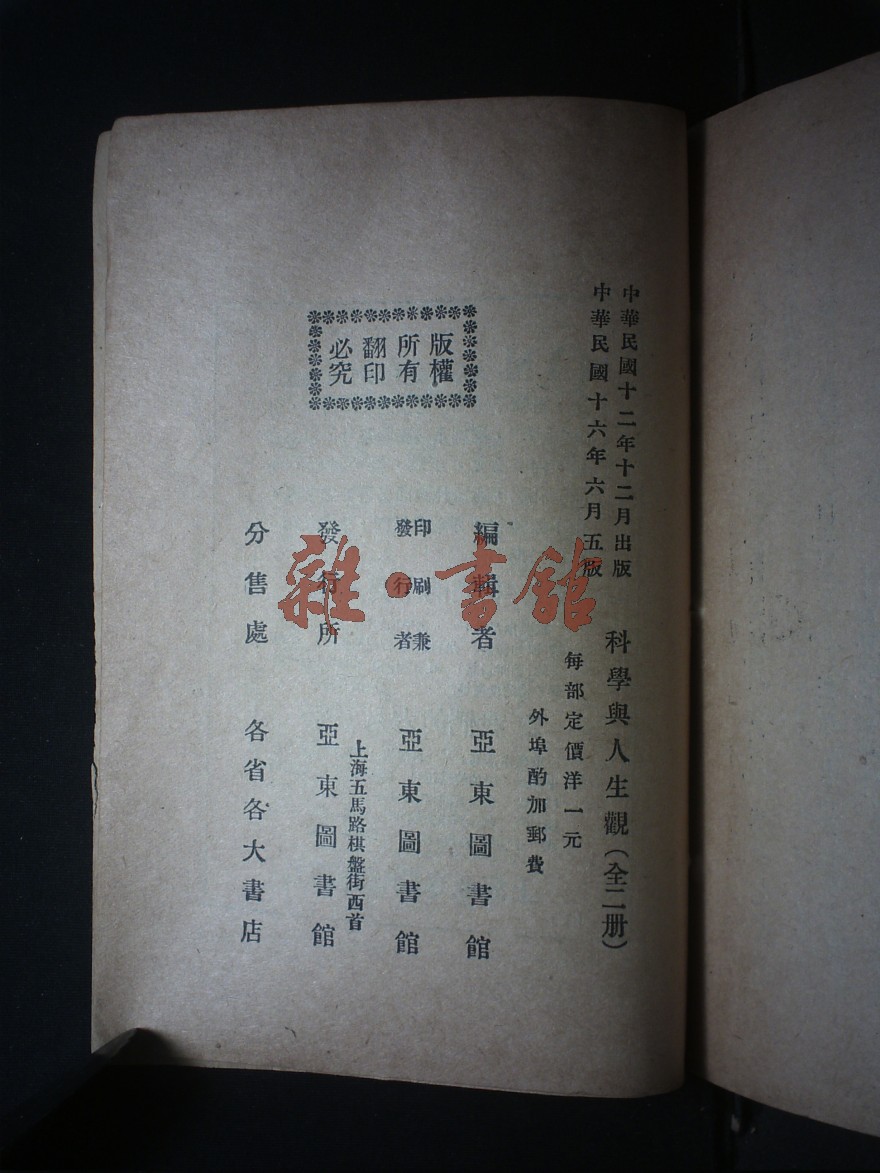 中華民國十二年十二月出版
中華民國十六年六月五版
科學與人生觀(全二册)
每部定價洋一元
外埠酌加郵費
編輯者 亞東圖書館
印刷兼
發行者 亞東圖書館
上海五馬路棋盤街西首
發行所 亞東圖書館
分售處 各省各大書店
版權
所有
翻印
必究
雜·書館